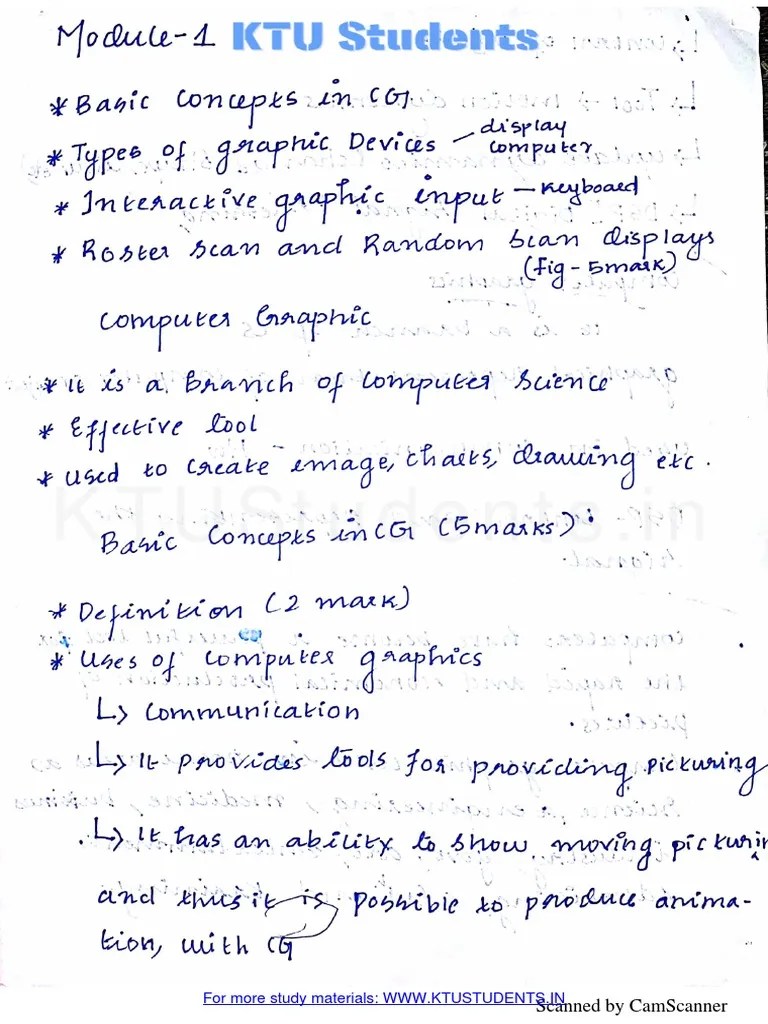 Module-1 KTU Students
* Basic Concepts in CG
* Types of graphic Devices — display
computer
* Interactive graphic input — Keyboard
* Roster Scan and Random Scan displays
(fig - 5mark)
Computer Graphic
* It is a Branch of Computer Science
* Effective tool
* Used to create image, charts, drawing etc.
KTUStudents.in
Basic Concepts in CG (5marks):
* Definition (2 mark)
* Uses of Computer graphics
↳ Communication
↳ It provides tools for providing picturing
↳ It has an ability to show moving picturin
and thus it is possible to produce anima-
tion, with CG
For more study materials: WWW.KTUSTUDENTS.IN
Scanned by CamScanner